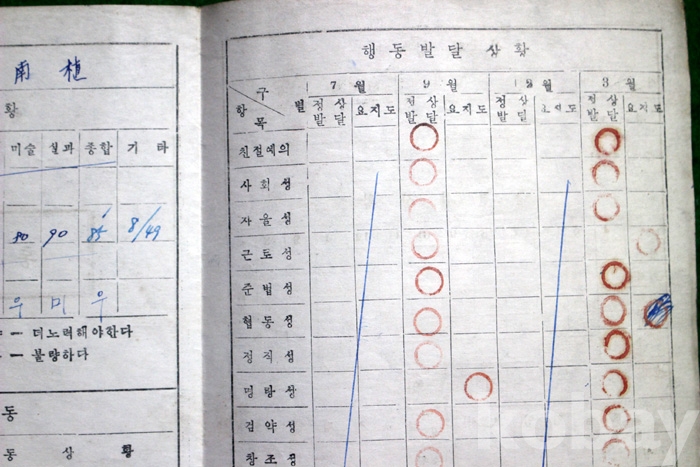 南 植
황
미술 실과 종합 기 타
90 90 85 8/49
우 미 우
— 더노력해야한다
— 불량하다
동
동 상 황
행 동 발 달 상 황
구 별 항 목
7 월 9 월 월 3 월
정 상 발 달 요지도 정 상 발 달 요 지 도 정 상 발 달 요 지 도 정 상 발 달 요 지 도
친절예의
사 회 성
자 율 성
근 로 성
준 법 성
협 동 성
정 직 성
명 랑 성
검 약 성
창 조 성
kobay